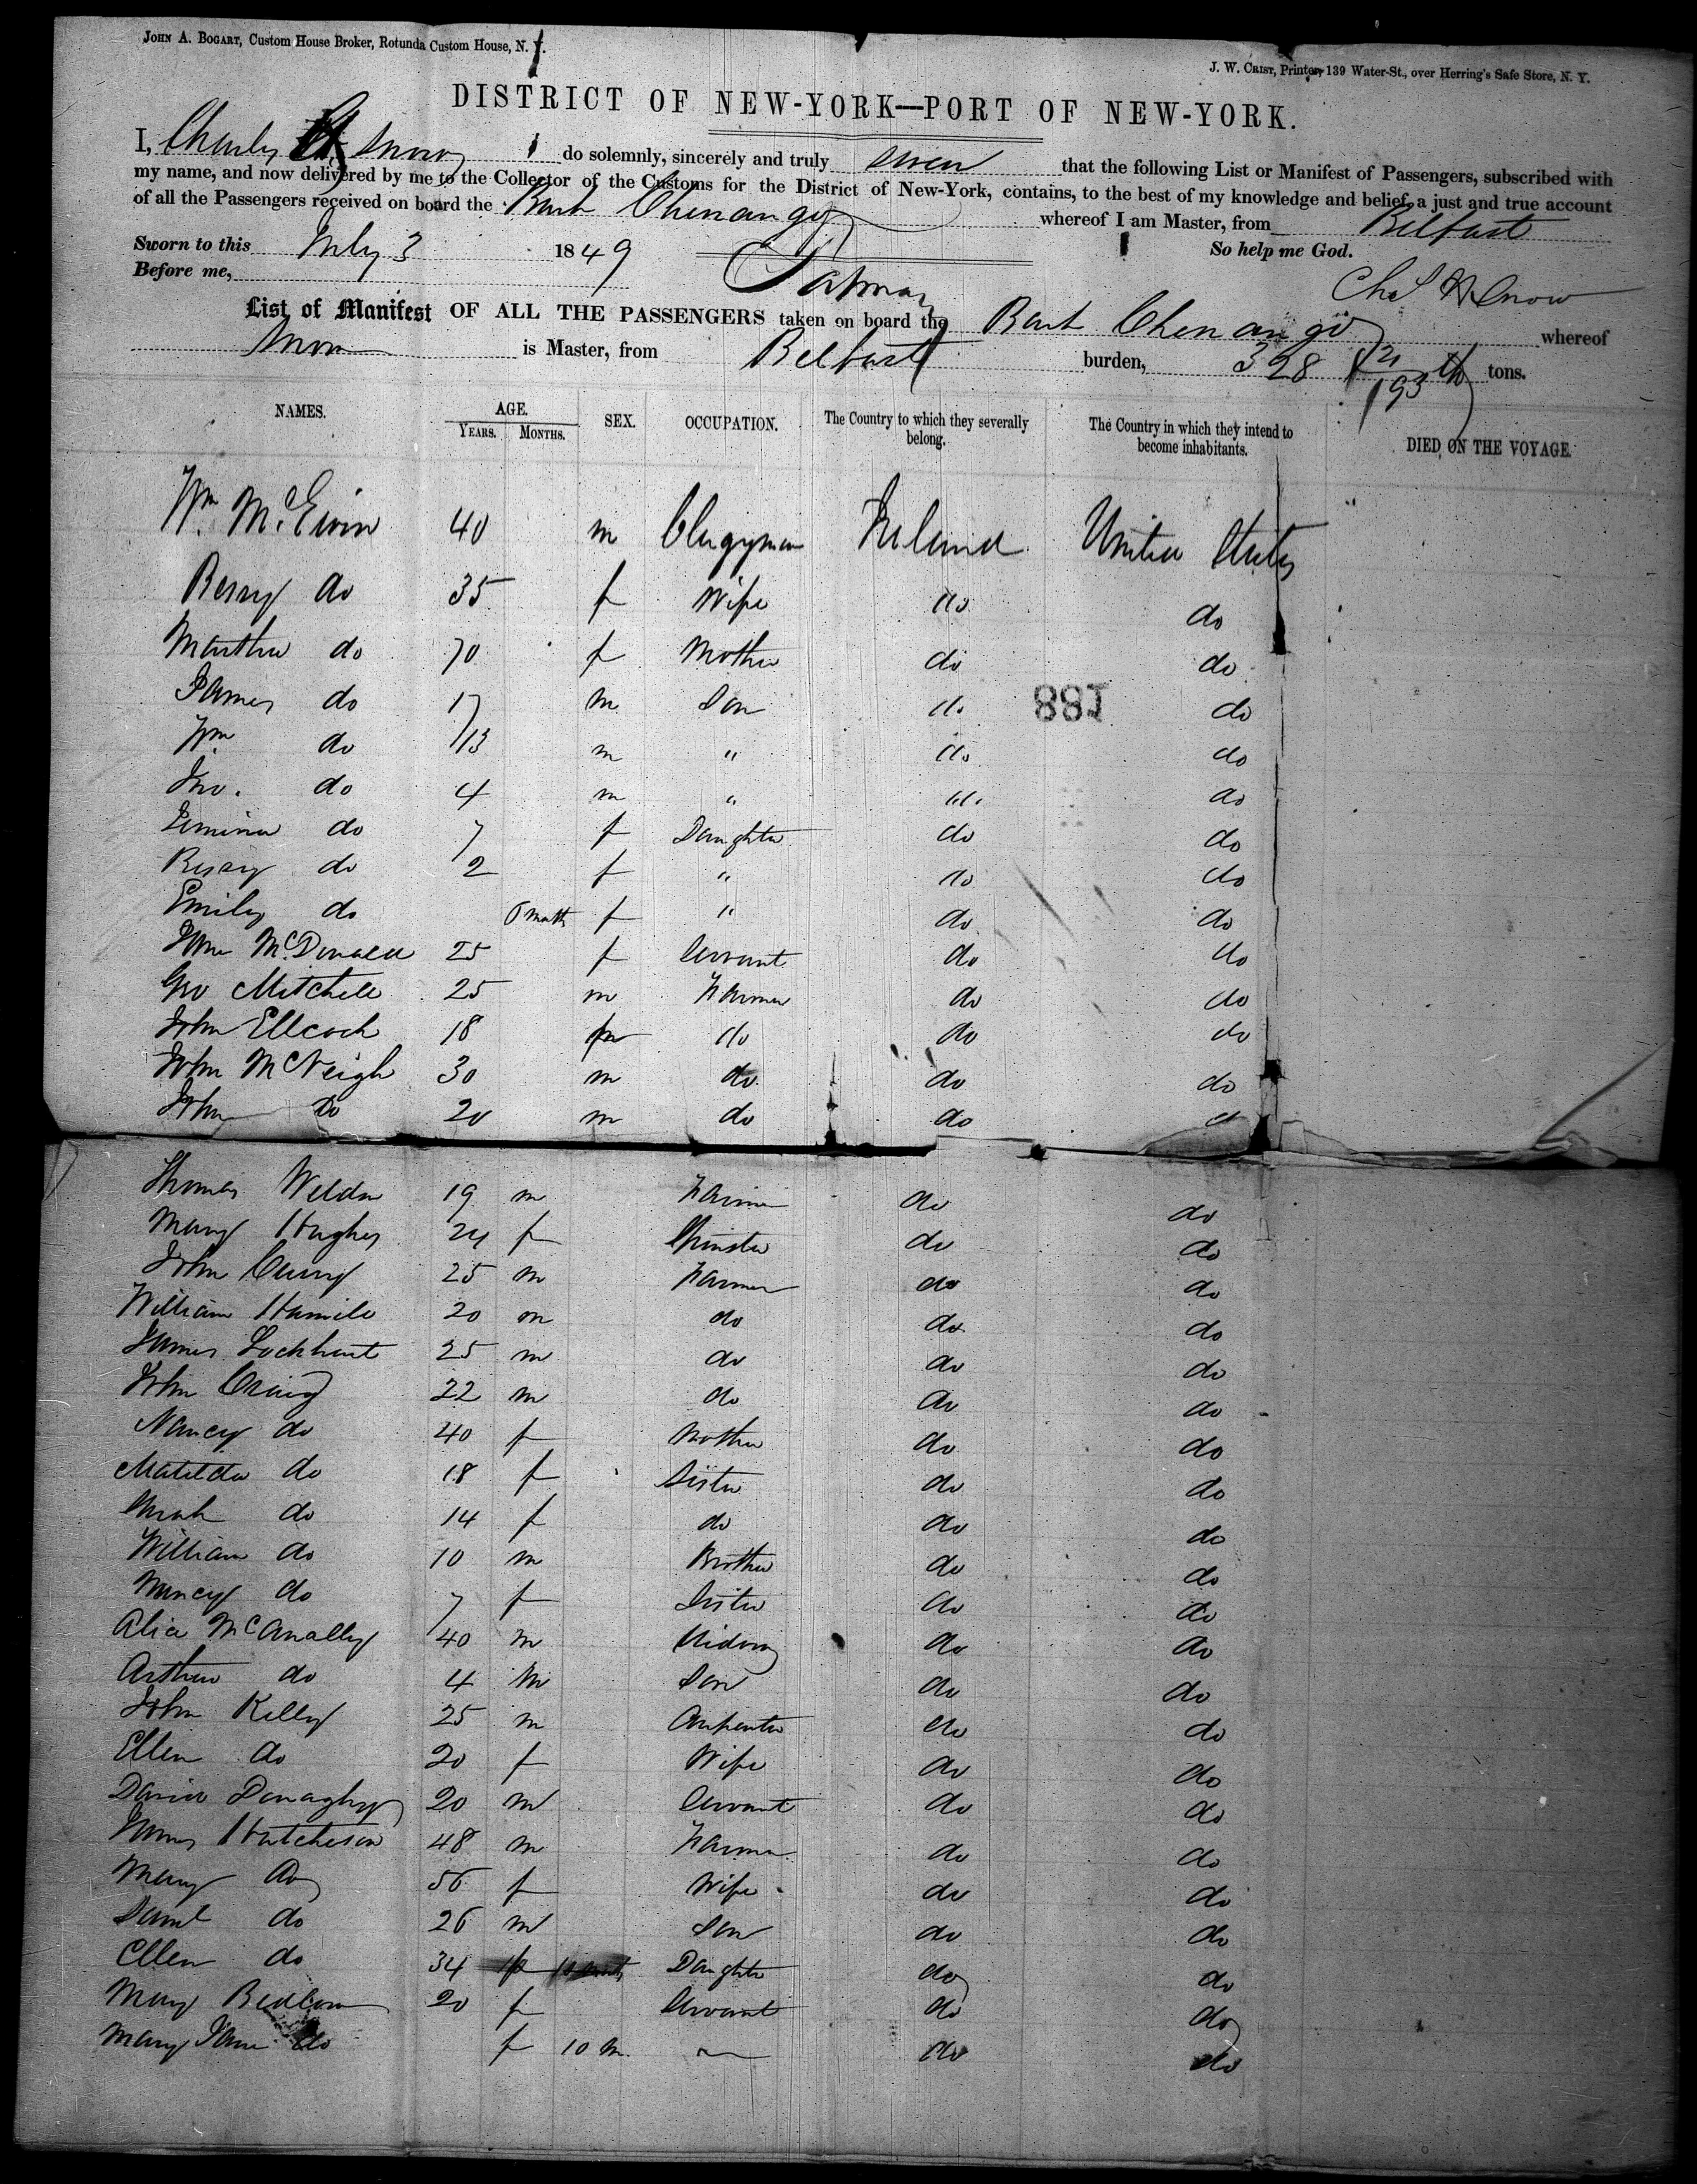 JOHN A. BOGART, Custom House Broker, Rotunda Custom House, N. Y.
J. W. CRIST, Printer, 139 Water-St., over Herring's Safe Store, N. Y.
DISTRICT OF NEW-YORK—PORT OF NEW-YORK.
I, Charles H Snow do solemnly, sincerely and truly swear that the following List or Manifest of Passengers, subscribed with
my name, and now delivered by me to the Collector of the Customs for the District of New-York, contains, to the best of my knowledge and belief, a just and true account
of all the Passengers received on board the Bark Chenango whereof I am Master, from Belfast
Sworn to this July 3 1849 So help me God.
Before me, Chs H Snow
List of Manifest OF ALL THE PASSENGERS taken on board the Bark Chenango whereof
Snow is Master, from Belfast burden, 328 tons.
NAMES. AGE. YEARS. MONTHS. SEX. OCCUPATION. The Country to which they severally belong. The Country in which they intend to become inhabitants. DIED ON THE VOYAGE.
Wm McEwin 40 m Clergyman Ireland United States
Bessy do 35 f Wife do do
Martha do 70 f Mother do do
James do 17 m Son do do
188
Wm do 13 m " do do
Jno. do 4 m " do do
Jemima do 7 f Daughter do do
Bessy do 2 f " do do
Emily do 6 month f " do do
Jane McDonald 25 f Servant do do
Geo Mitchell 25 m Farmer do do
John Ellcock 18 m do do do
John McVeigh 30 m do do do
John do 20 m do do d
Thomas Weldon 19 m Farmer do do
Mary Hughes 24 f Spinster do do
John Curry 25 m Farmer do do
William Hamill 20 m do do do
James Lockhart 25 m do do do
John Craig 22 m do do do
Nancy do 40 f Mother do do
Matilda do 18 f Sister do do
Sarah do 14 f do do do
William do 10 m Brother do do
Nancy do 7 f Sister do do
Alice McAnally 40 m Widow do do
Arthur do 4 m Son do do
John Kelly 25 m Carpenter do do
Ellen do 20 f Wife do do
David Donaghy 20 m Servant do do
James Hutcheson 48 m Farmer do do
Mary do 56 f Wife do do
Saml do 26 m Son do do
Ellen do 34 f Daughter do do
Mary Bedlow 20 f Servant do do
Mary Jane do f 10 m. — do do